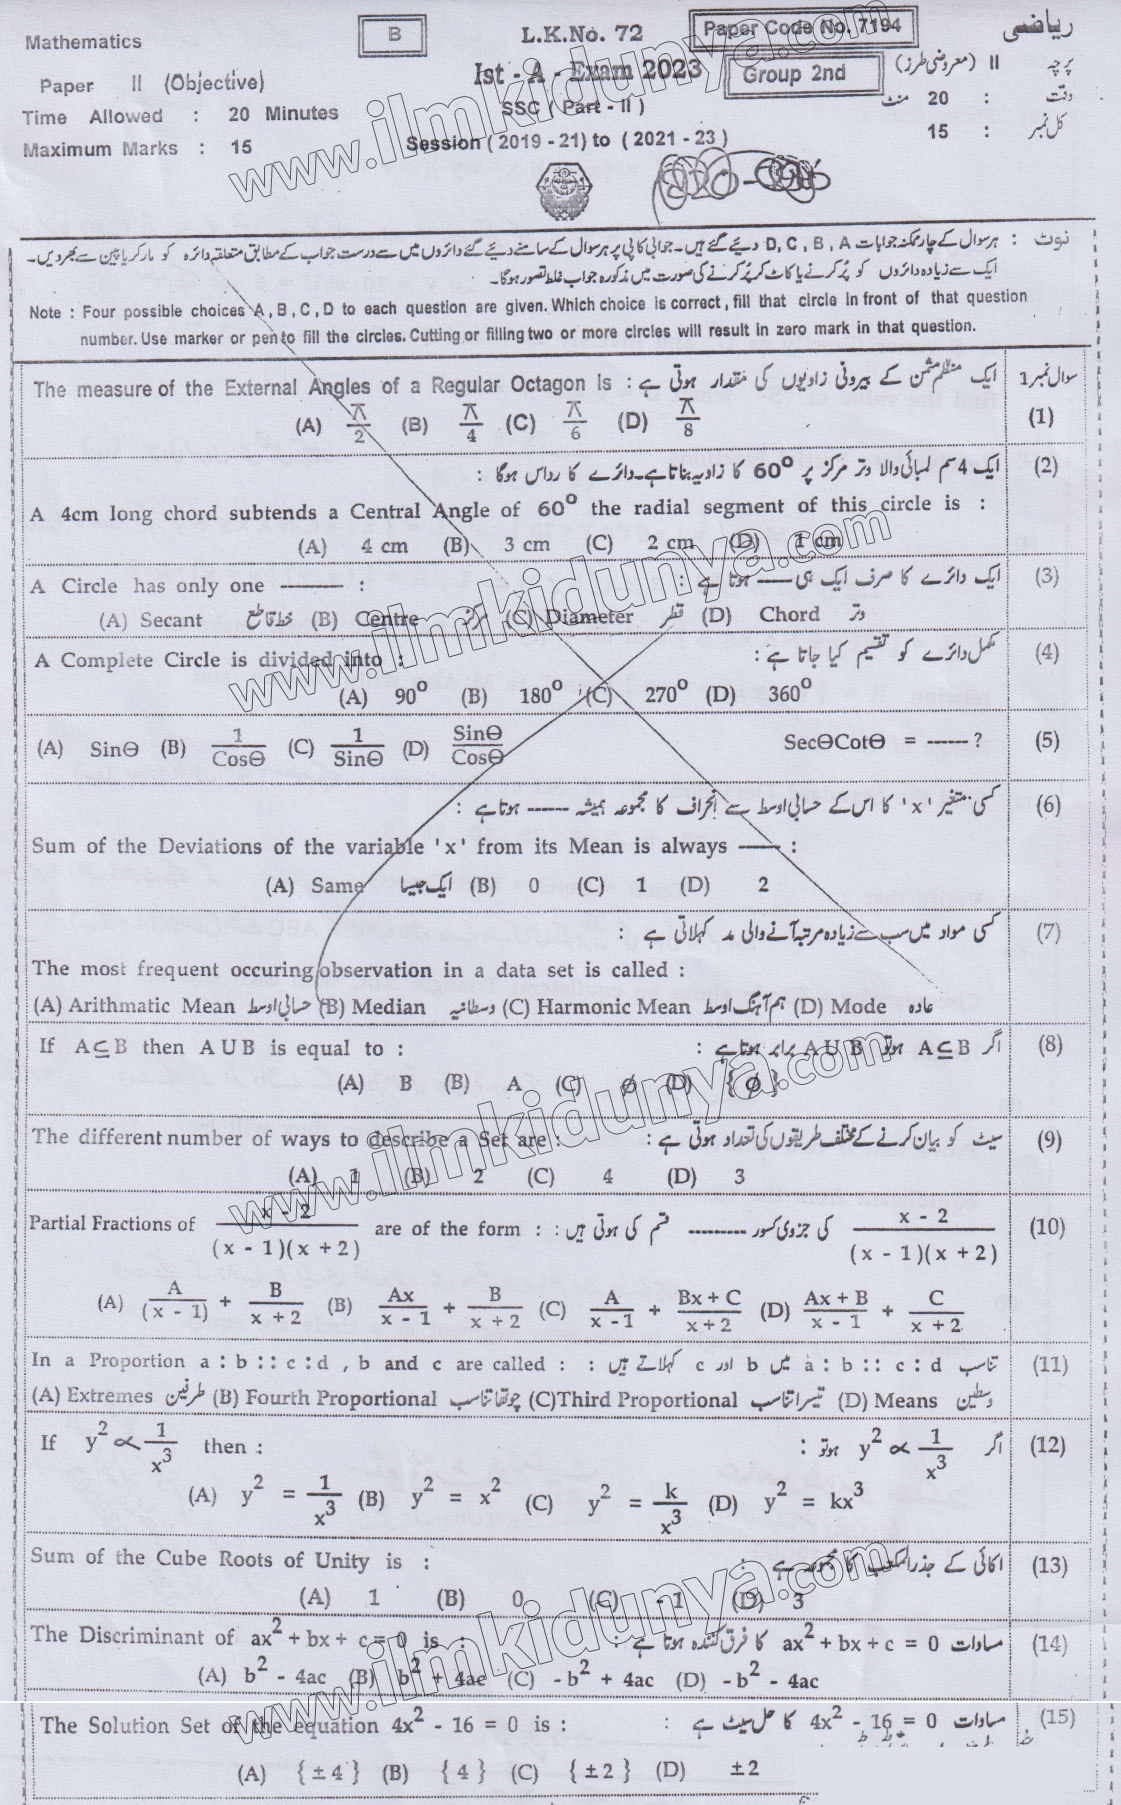 Mathematics
B
L.K.No. 72
Paper Code No. 7194
ریاضی
Paper II (Objective)
Ist - A - Exam 2023
Group 2nd
پرچہ II (معروضی طرز)
Time Allowed : 20 Minutes
SSC ( Part - II )
وقت : 20 منٹ
Maximum Marks : 15
Session ( 2019 - 21) to ( 2021 - 23 )
کل نمبر : 15
نوٹ : ہر سوال کے چار ممکنہ جوابات D, C, B, A دیئے گئے ہیں۔ جوابی کاپی پر ہر سوال کے سامنے دیئے گئے دائروں میں سے درست جواب کے مطابق متعلقہ دائرہ کو مارکر یا پین سے بھر دیں۔
ایک سے زیادہ دائروں کو پُر کرنے یا کاٹ کر پُر کرنے کی صورت میں مذکورہ جواب غلط تصور ہوگا۔
Note : Four possible choices A , B , C , D to each question are given. Which choice is correct , fill that circle in front of that question
number. Use marker or pen to fill the circles. Cutting or filling two or more circles will result in zero mark in that question.
سوال نمبر 1
The measure of the External Angles of a Regular Octagon is : ایک منظم مثمن کے بیرونی زاویوں کی مقدار ہوتی ہے :
(1)
(A) π/2 (B) π/4 (C) π/6 (D) π/8
(2) ایک 4 سم لمبائی والا وتر مرکز پر 60⁰ کا زاویہ بناتا ہے۔ دائرے کا رداس ہوگا :
A 4cm long chord subtends a Central Angle of 60⁰ the radial segment of this circle is :
(A) 4 cm (B) 3 cm (C) 2 cm (D) 1 cm
(3) A Circle has only one ------- : ایک دائرے کا صرف ایک ہی ----- ہوتا ہے :
(A) Secant خط قاطع (B) Centre مرکز (C) Diameter قطر (D) Chord وتر
(4) A Complete Circle is divided into : مکمل دائرے کو تقسیم کیا جاتا ہے :
(A) 90⁰ (B) 180⁰ (C) 270⁰ (D) 360⁰
(5) SecΘCotΘ = ------ ?
(A) SinΘ (B) 1/CosΘ (C) 1/SinΘ (D) SinΘ/CosΘ
(6) کسی متغیر 'x' کا اس کے حسابی اوسط سے انحراف کا مجموعہ ہمیشہ ------ ہوتا ہے :
Sum of the Deviations of the variable 'x' from its Mean is always ----- :
(A) Same ایک جیسا (B) 0 (C) 1 (D) 2
(7) کسی مواد میں سب سے زیادہ مرتبہ آنے والی مد کہلاتی ہے :
The most frequent occuring observation in a data set is called :
(A) Arithmatic Mean حسابی اوسط (B) Median وسطانیہ (C) Harmonic Mean ہم آہنگ اوسط (D) Mode عادہ
(8) If A⊆B then A U B is equal to : اگر A⊆B ہو تو A U B برابر ہوتا ہے :
(A) B (B) A (C) ϕ (D) {ϕ}
(9) The different number of ways to describe a Set are : سیٹ کو بیان کرنے کے مختلف طریقوں کی تعداد ہوتی ہے :
(A) 1 (B) 2 (C) 4 (D) 3
(10) Partial Fractions of x - 2/( x - 1 )( x + 2 ) are of the form : x - 2/( x - 1 )( x + 2 ) کی جزوی کسور --------- قسم کی ہوتی ہیں :
(A) A/(x - 1) + B/x + 2 (B) Ax/x - 1 + B/x + 2 (C) A/x - 1 + Bx + C/x + 2 (D) Ax + B/x - 1 + C/x + 2
(11) In a Proportion a : b : : c : d , b and c are called : تناسب a : b : : c : d میں b اور c کہلاتے ہیں :
(A) Extremes طرفین (B) Fourth Proportional چوتھا تناسب (C)Third Proportional تیسرا تناسب (D) Means وسطین
(12) If y² ∝ 1/x³ then : اگر y² ∝ 1/x³ ہو تو :
(A) y² = 1/x³ (B) y² = x² (C) y² = k/x³ (D) y² = kx³
(13) Sum of the Cube Roots of Unity is : اکائی کے جذر المکعب کا مجموعہ ہے :
(A) 1 (B) 0 (C) - 1 (D) 3
(14) The Discriminant of ax² + bx + c = 0 is : مساوات ax² + bx + c = 0 کا فرق کنندہ ہوتا ہے :
(A) b² - 4ac (B) b² + 4ac (C) -b² + 4ac (D) -b² - 4ac
(15) The Solution Set of the equation 4x² - 16 = 0 is : مساوات 4x² - 16 = 0 کا حل سیٹ ہے :
(A) { ± 4 } (B) { 4 } (C) { ± 2 } (D) ± 2
www.ilmkidunya.com
www.ilmkidunya.com
www.ilmkidunya.com
www.ilmkidunya.com